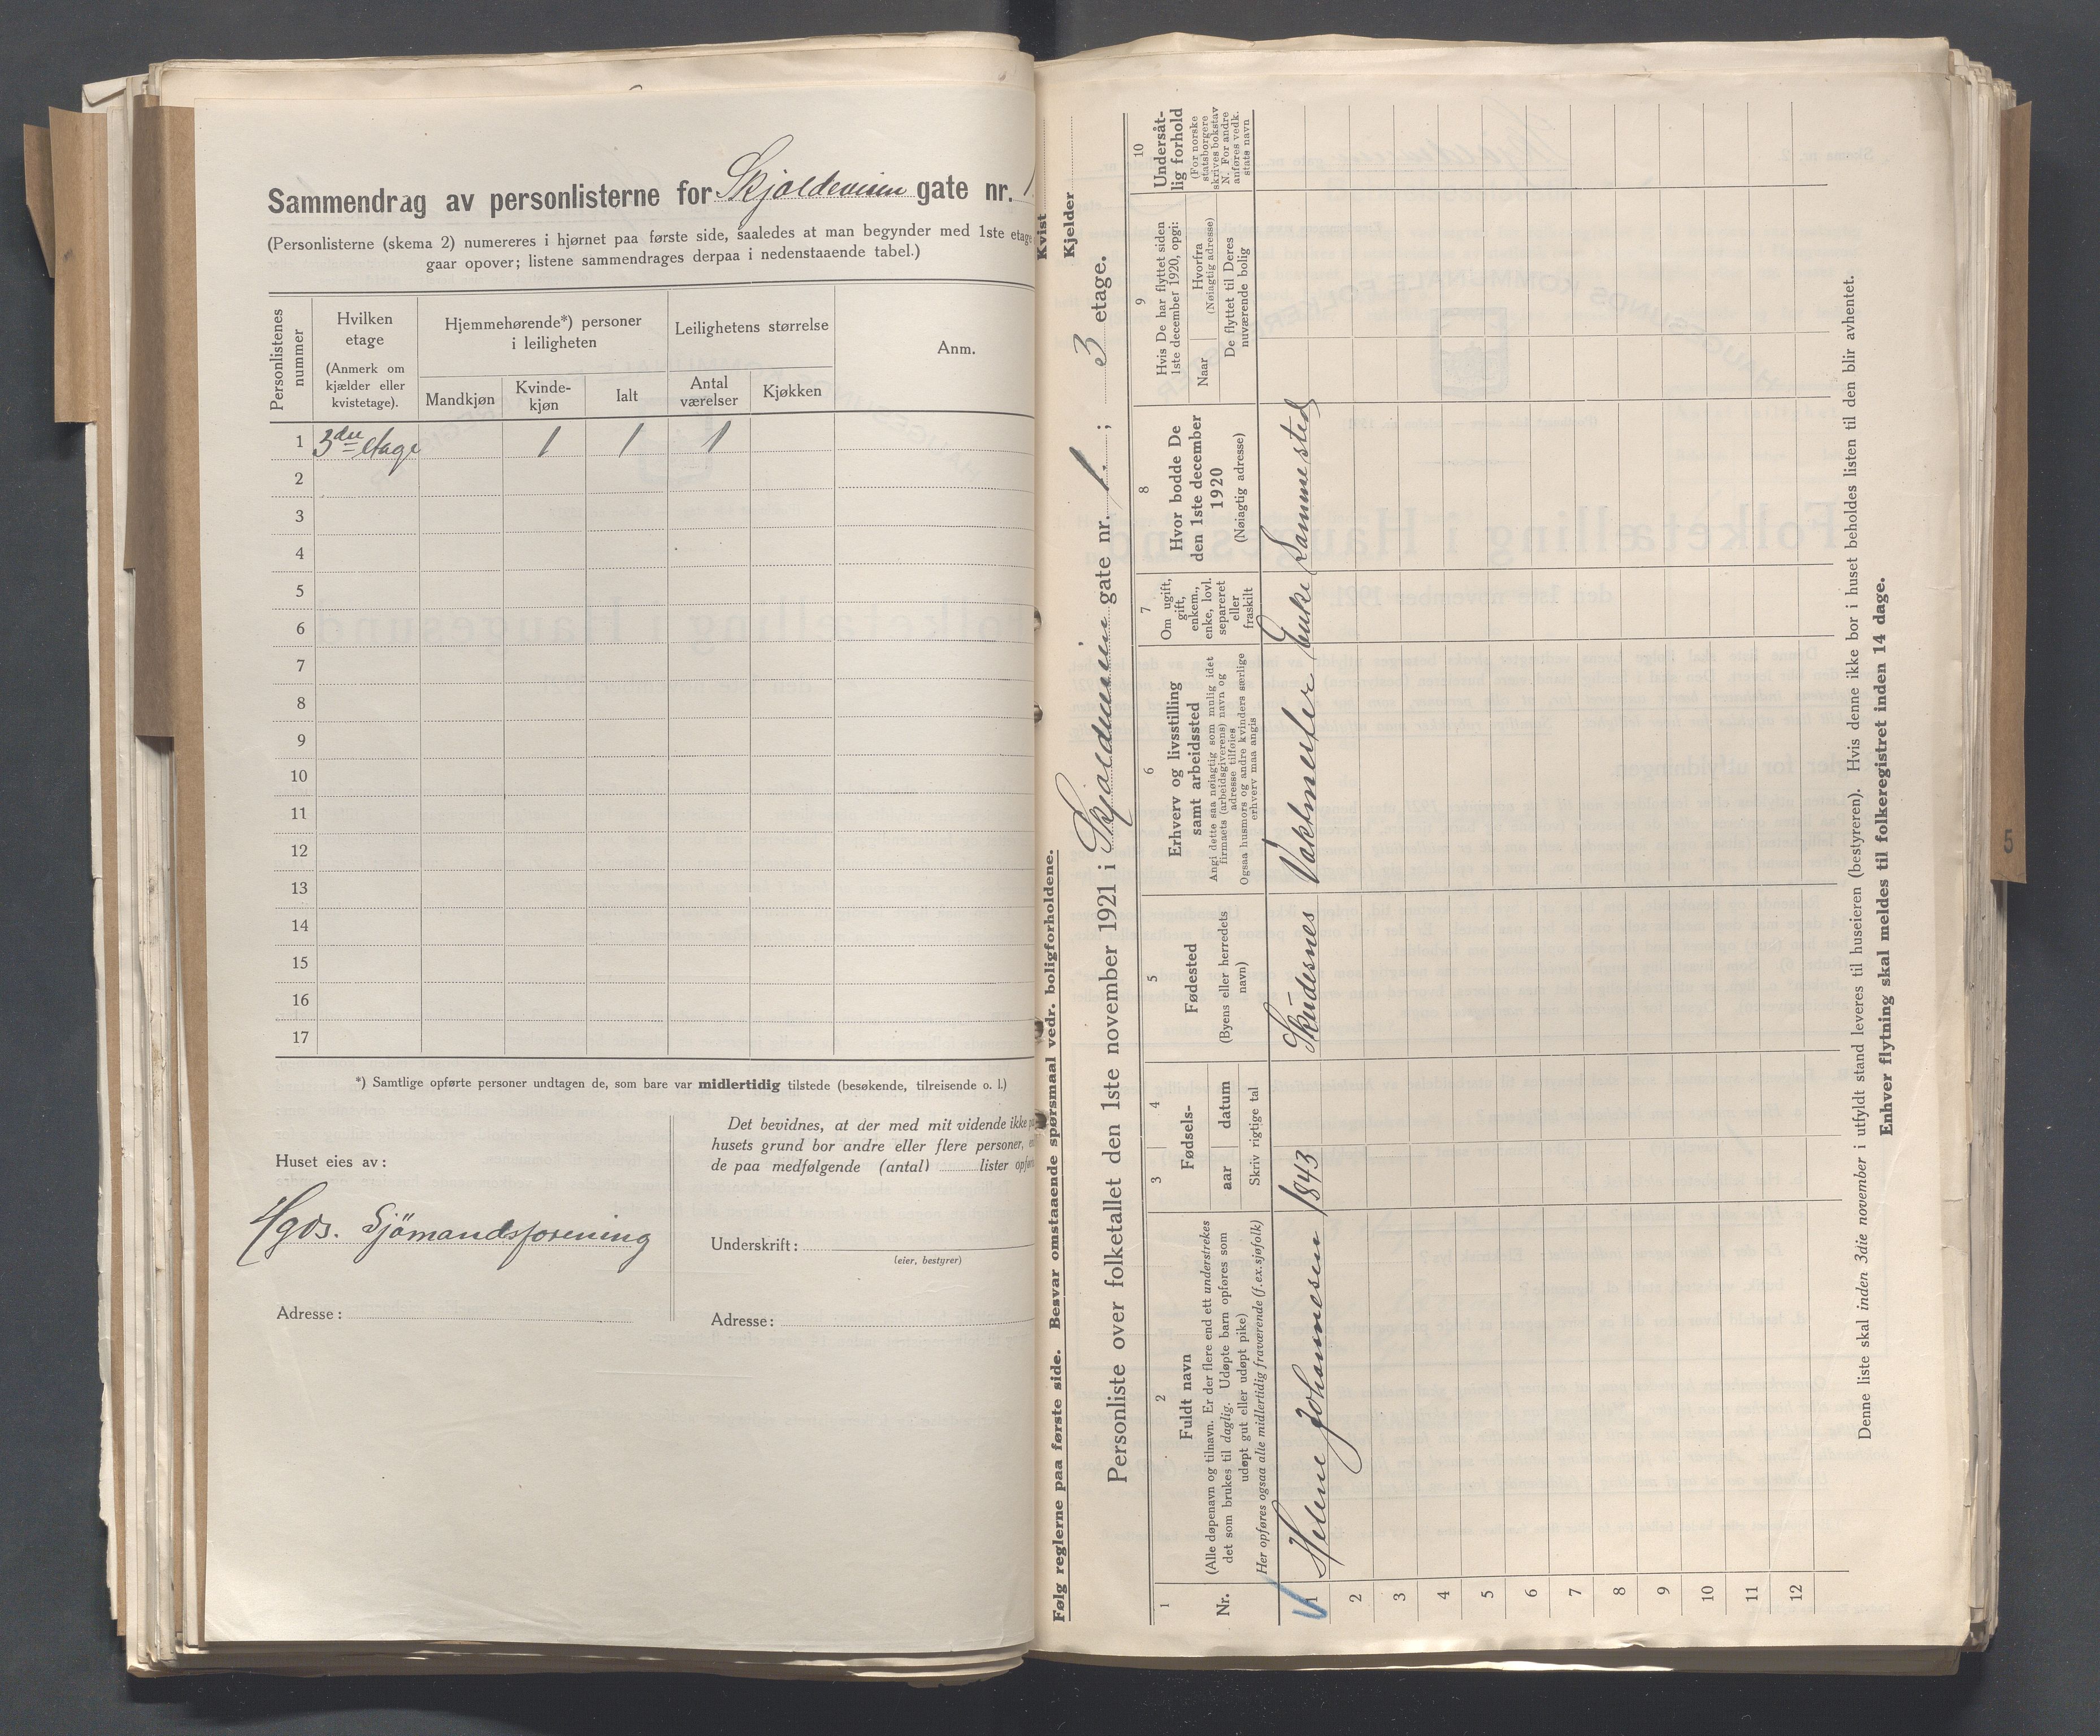 Sammendrag av personlisterne for Skjoldevеien gate nr. 1.
(Personlisterne (skema 2) numereres i hjørnet paa første side, saaledes at man begynder med 1ste etage
gaar opover; listene sammendrages derpaa i nedenstaaende tabel.)
Personlistenes nummer
Hvilken etage
(Anmerk om kjælder eller kvistetage).
Hjemmehørende*) personer i leiligheten
Mandkjøn
Kvindekjøn
Ialt
Leilighetens størrelse
Antal værelser
Kjøkken
Anm.
1 3die etage 1 1 1
2
3
4
5
6
7
8
9
10
11
12
13
14
15
16
17
*) Samtlige opførte personer undtagen de, som bare var midlertidig tilstede (besøkende, tilreisende o. l.)
Huset eies av:
Hgds. Sjömandsforening
Adresse:
Det bevidnes, at der med mit vidende ikke
husets grund bor andre eller flere personer,
de paa medfølgende (antal) lister
Underskrift:
(eier, bestyrer)
Adresse:
Følg reglerne paa første side. Besvar omstaaende spørsmaal vedr. boligforholdene.
Kvist
Kjelder
Personliste over folketallet den 1ste november 1921 i Skjoldevеien gate nr. 1.; 3 etage.
1
Nr.
2
Fuldt navn
(Alle døpenavn og tilnavn. Er der flere end ett understrekes
det som brukes til daglig. Udøpte barn opføres som
udøpt gut eller udøpt pike)
Her opføres ogsaa alle midlertidig fraværende (f.ex. sjøfolk)
3 4
Fødsels-
aar datum
Skriv rigtige tal
5
Fødested
(Byens eller herredets
navn)
6
Erhverv og livsstilling
samt arbeidssted
Angi dette saa nøiagtig som mulig idet
firmaets (arbeidsgiverens) navn og
adresse tilføies
Ogsaa husmors og andre kvinders særlige
erhverv maa angis
7
Om ugift,
gift,
enkem.,
enke, lovl.
separeret
eller
fraskilt
8
Hvor bodde De
den 1ste december
1920
(Nøiagtig adresse)
9
Hvis De har flyttet siden
1ste december 1920, opgi:
Naar
Hvorfra
(Nøiagtig adresse)
De flyttet til Deres
nuværende bolig
10
Undersåtlig forhold
(For norske
statsborgere
skrives bokstav
N. For andre
anføres vedk.
stats navn
1 Helene Johannesen 1843 Skudesnes Vaktmester Enke Sammested
2
3
4
5
6
7
8
9
10
11
12
Denne liste skal inden 3die november i utfyldt stand leveres til huseieren (bestyreren). Hvis denne ikke bor i huset beholdes listen til den blir avhentet.
Enhver flytning skal meldes til folkeregistret inden 14 dage.
5